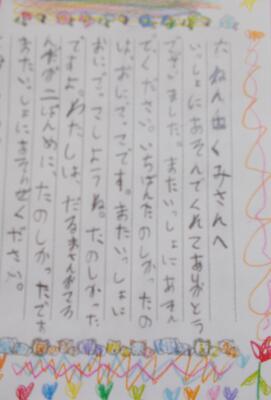 六ねん出くみさんへ
いっしょにあそんでくれてありがとう
ございました。またいっしょにあそん
でください。いちばんたのしかったの
は、おにごっこです。またいっしょに
おにごっこしようね。たのしかった
ですよ。わたしは、だるまさんがころ
んだが二ばんめに、たのしかったです。
またいっしょにあそんでください。